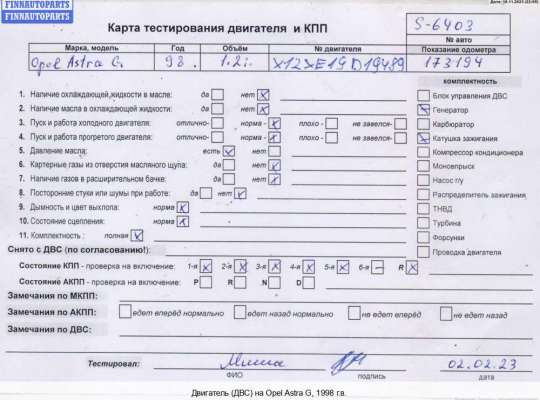 FINNAUTOPARTS
FINNAUTOPARTS
Карта тестирования двигателя и КПП
S-6403
№ авто
Марка, модель Год Объём № двигателя Показание одометра
Opel Astra G. 98. 1.2i. X12XE19D19489 173194
комплектность
1. Наличие охлаждающей жидкости в масле: да нет x
2. Наличие масла в охлаждающей жидкости: да нет x
3. Пуск и работа холодного двигателя: отлично- норма - x плохо - не завелся-
4. Пуск и работа прогретого двигателя: отлично- норма - x плохо - не завелся-
5. Давление масла: есть v нет
6. Картерные газы из отверстия масляного щупа: да нет x
7. Наличие газов в расширительном бачке: да нет x
8. Посторонние стуки или шумы при работе: да нет x
9. Дымность и цвет выхлопа: норма x
10. Состояние сцепления: норма x
11. Комплектность : полная x
Блок управления ДВС
Генератор
Карбюратор
Катушка зажигания
Компрессор кондиционера
Моновпрыск
Насос г/у
Распределитель зажигания
ТНВД
Турбина
Форсунки
Проводка двигателя
Снято с ДВС (по согласованию!):
Состояние КПП - проверка на включение: 1-я x 2-я x 3-я x 4-я x 5-я x 6-я – R x
Состояние АКПП - проверка на включение: P R N D
Замечания по МКПП:
Замечания по АКПП: едет вперёд нормально едет назад нормально не едет вперёд не едет назад
Замечания по ДВС:
Тестировал: Миша 02.02.23
ФИО подпись дата
Двигатель (ДВС) на Opel Astra G, 1998 г.в.